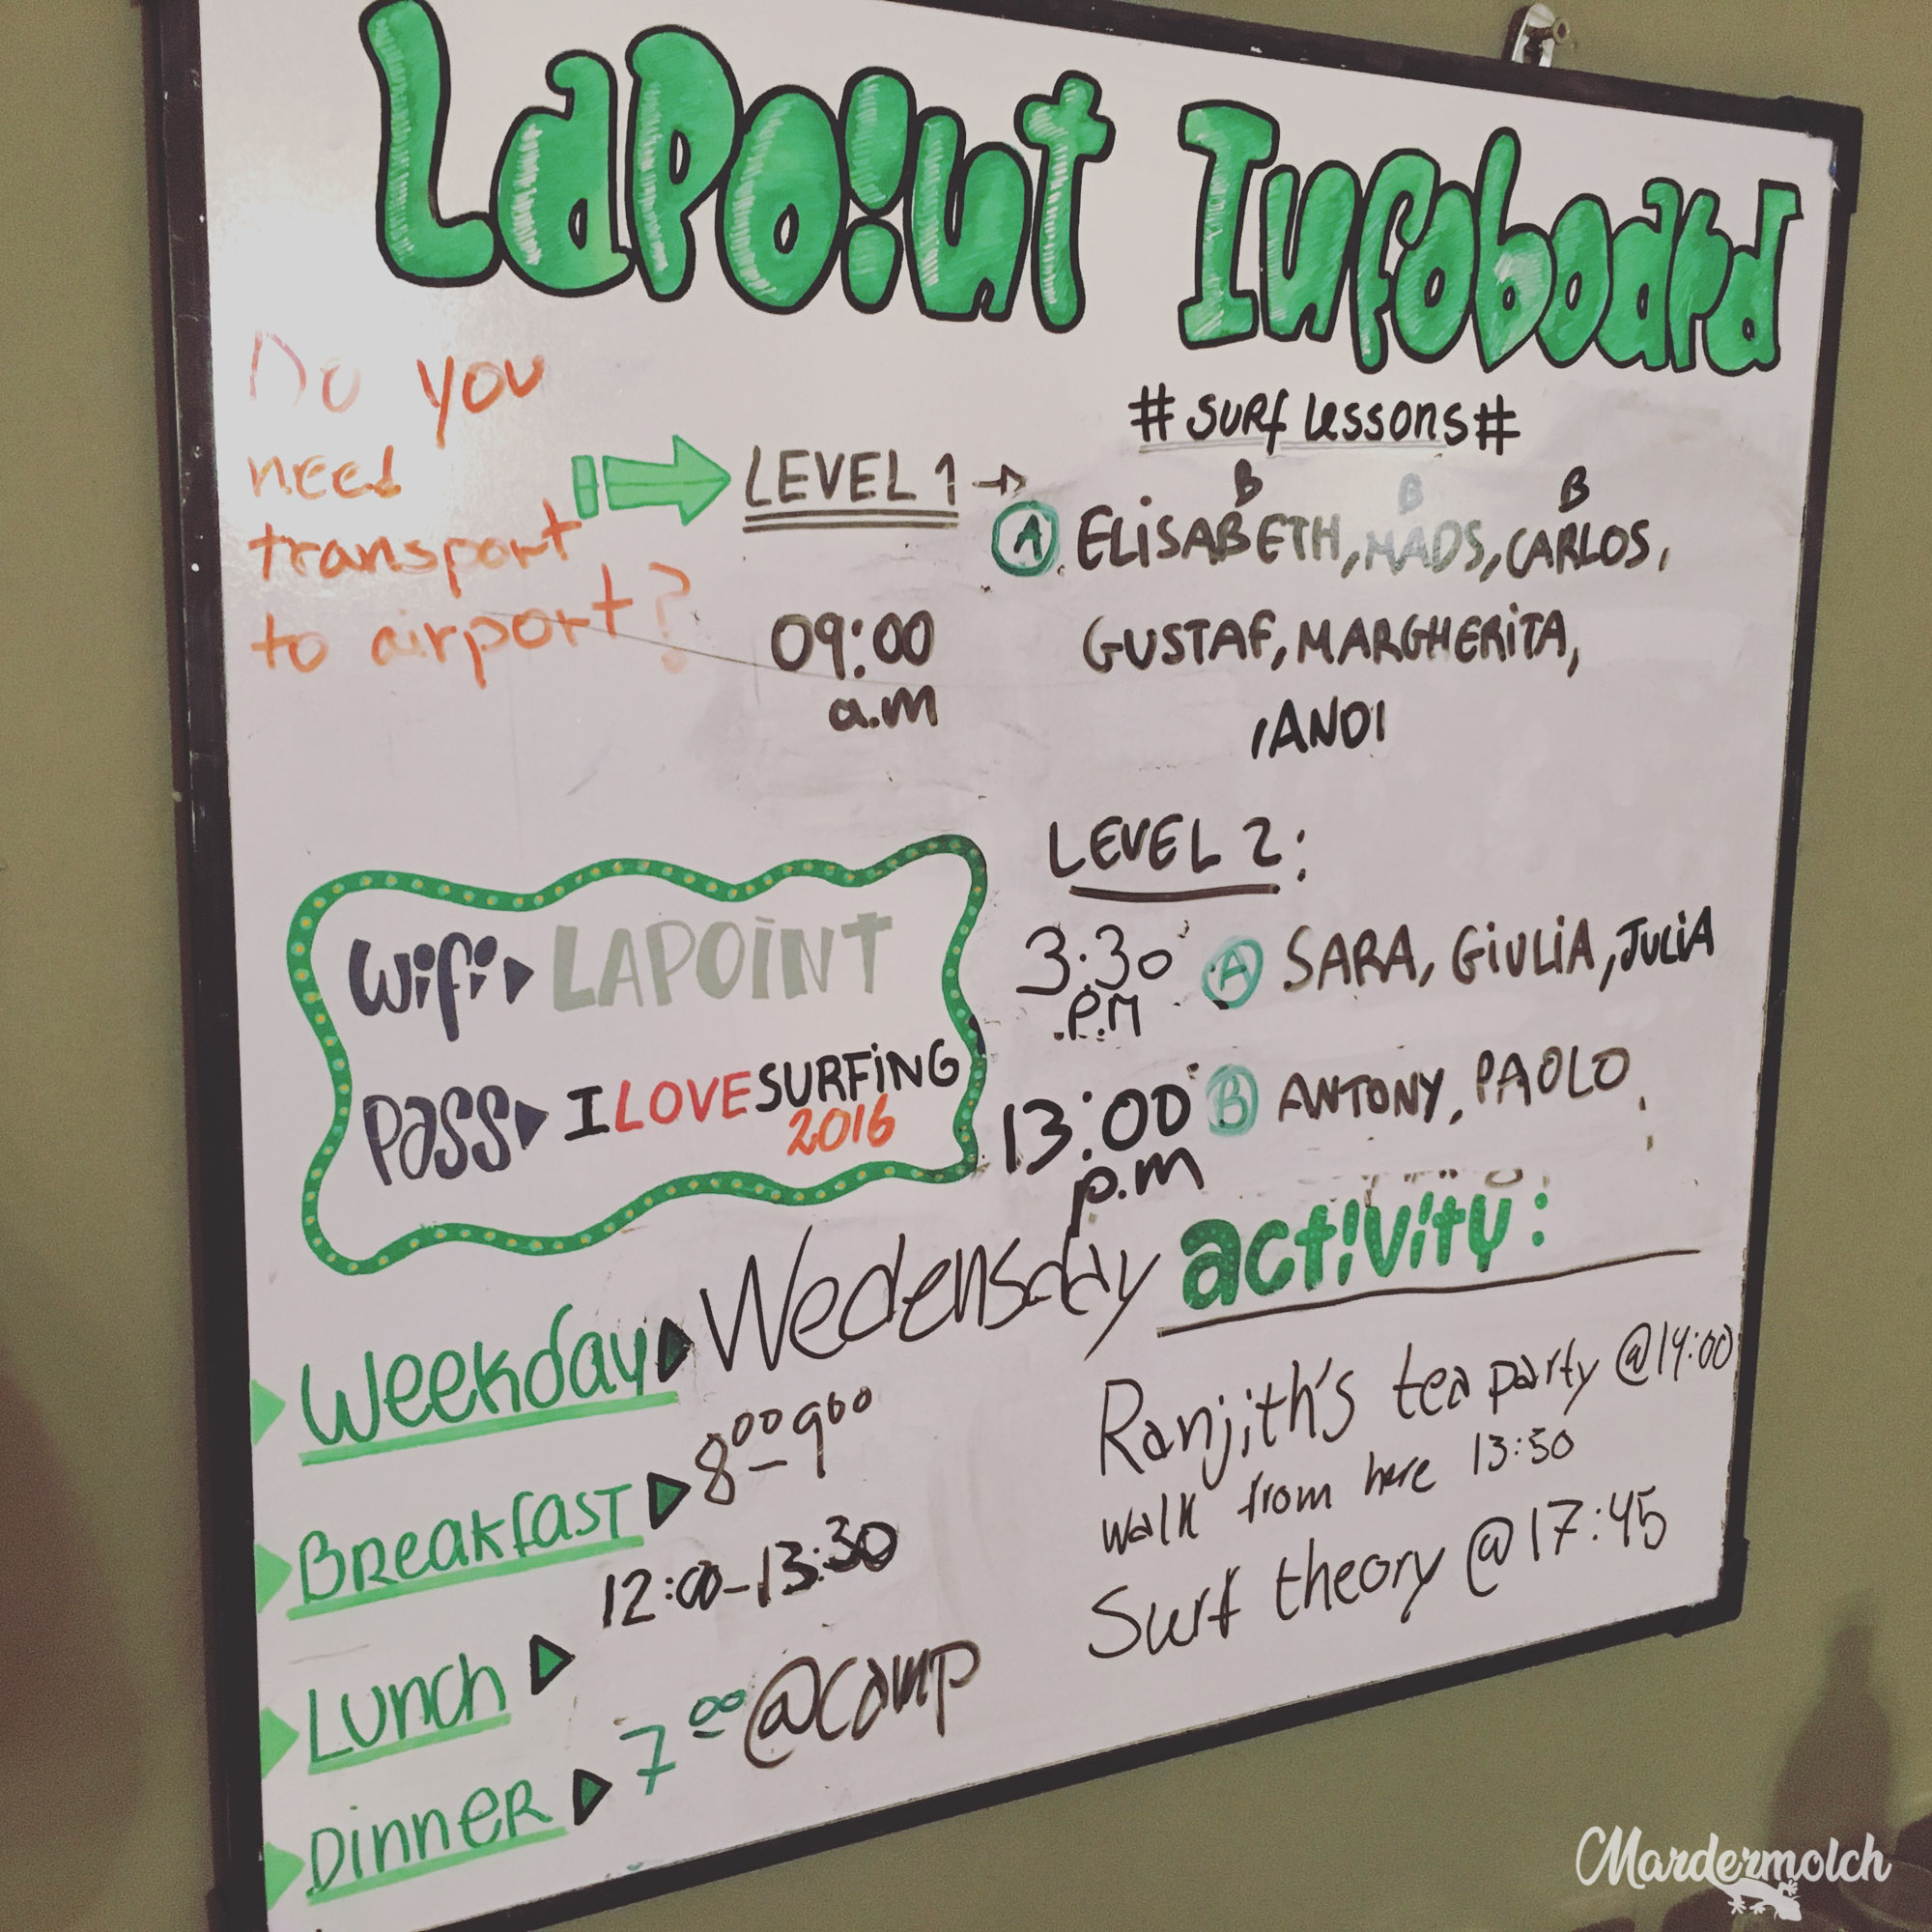 LaPoint Infoboard
Do you
need
transport
to airport?
# surf Lessons #
LEVEL 1
B B B
A ELISABETH, MADS, CARLOS,
09:00
a.m
GUSTAF, MARGHERITA,
, ANDI
LEVEL 2:
3:30 P.M A SARA, GIULIA, JULIA
13:00 p.m B ANTONY, PAOLO
wifi LAPOINT
Pass I LOVE SURFING
2016
Weekday Wedensday
Breakfast 8⁰⁰ – 9⁰⁰
Lunch 12:00-13:30
Dinner 7⁰⁰ @camp
activity:
Ranjith's tea party @14:00
walk from here 13:50
Surf theory @17:45
Mardermolch